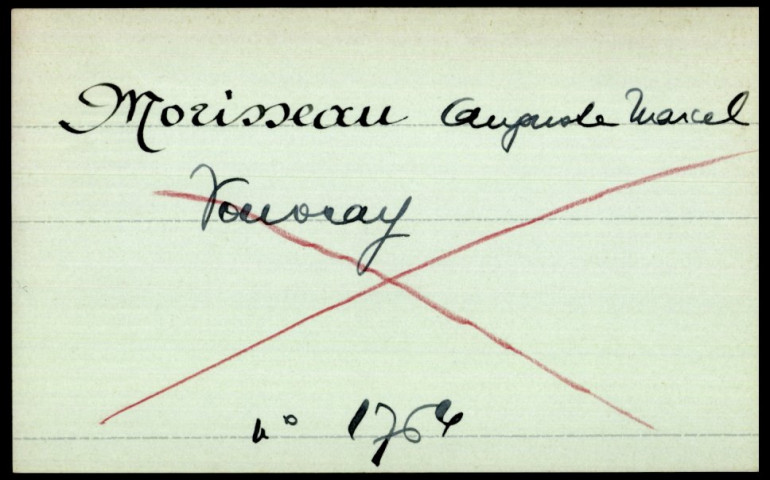 Morisseau Auguste Marcel
Vouvray
n° 1764